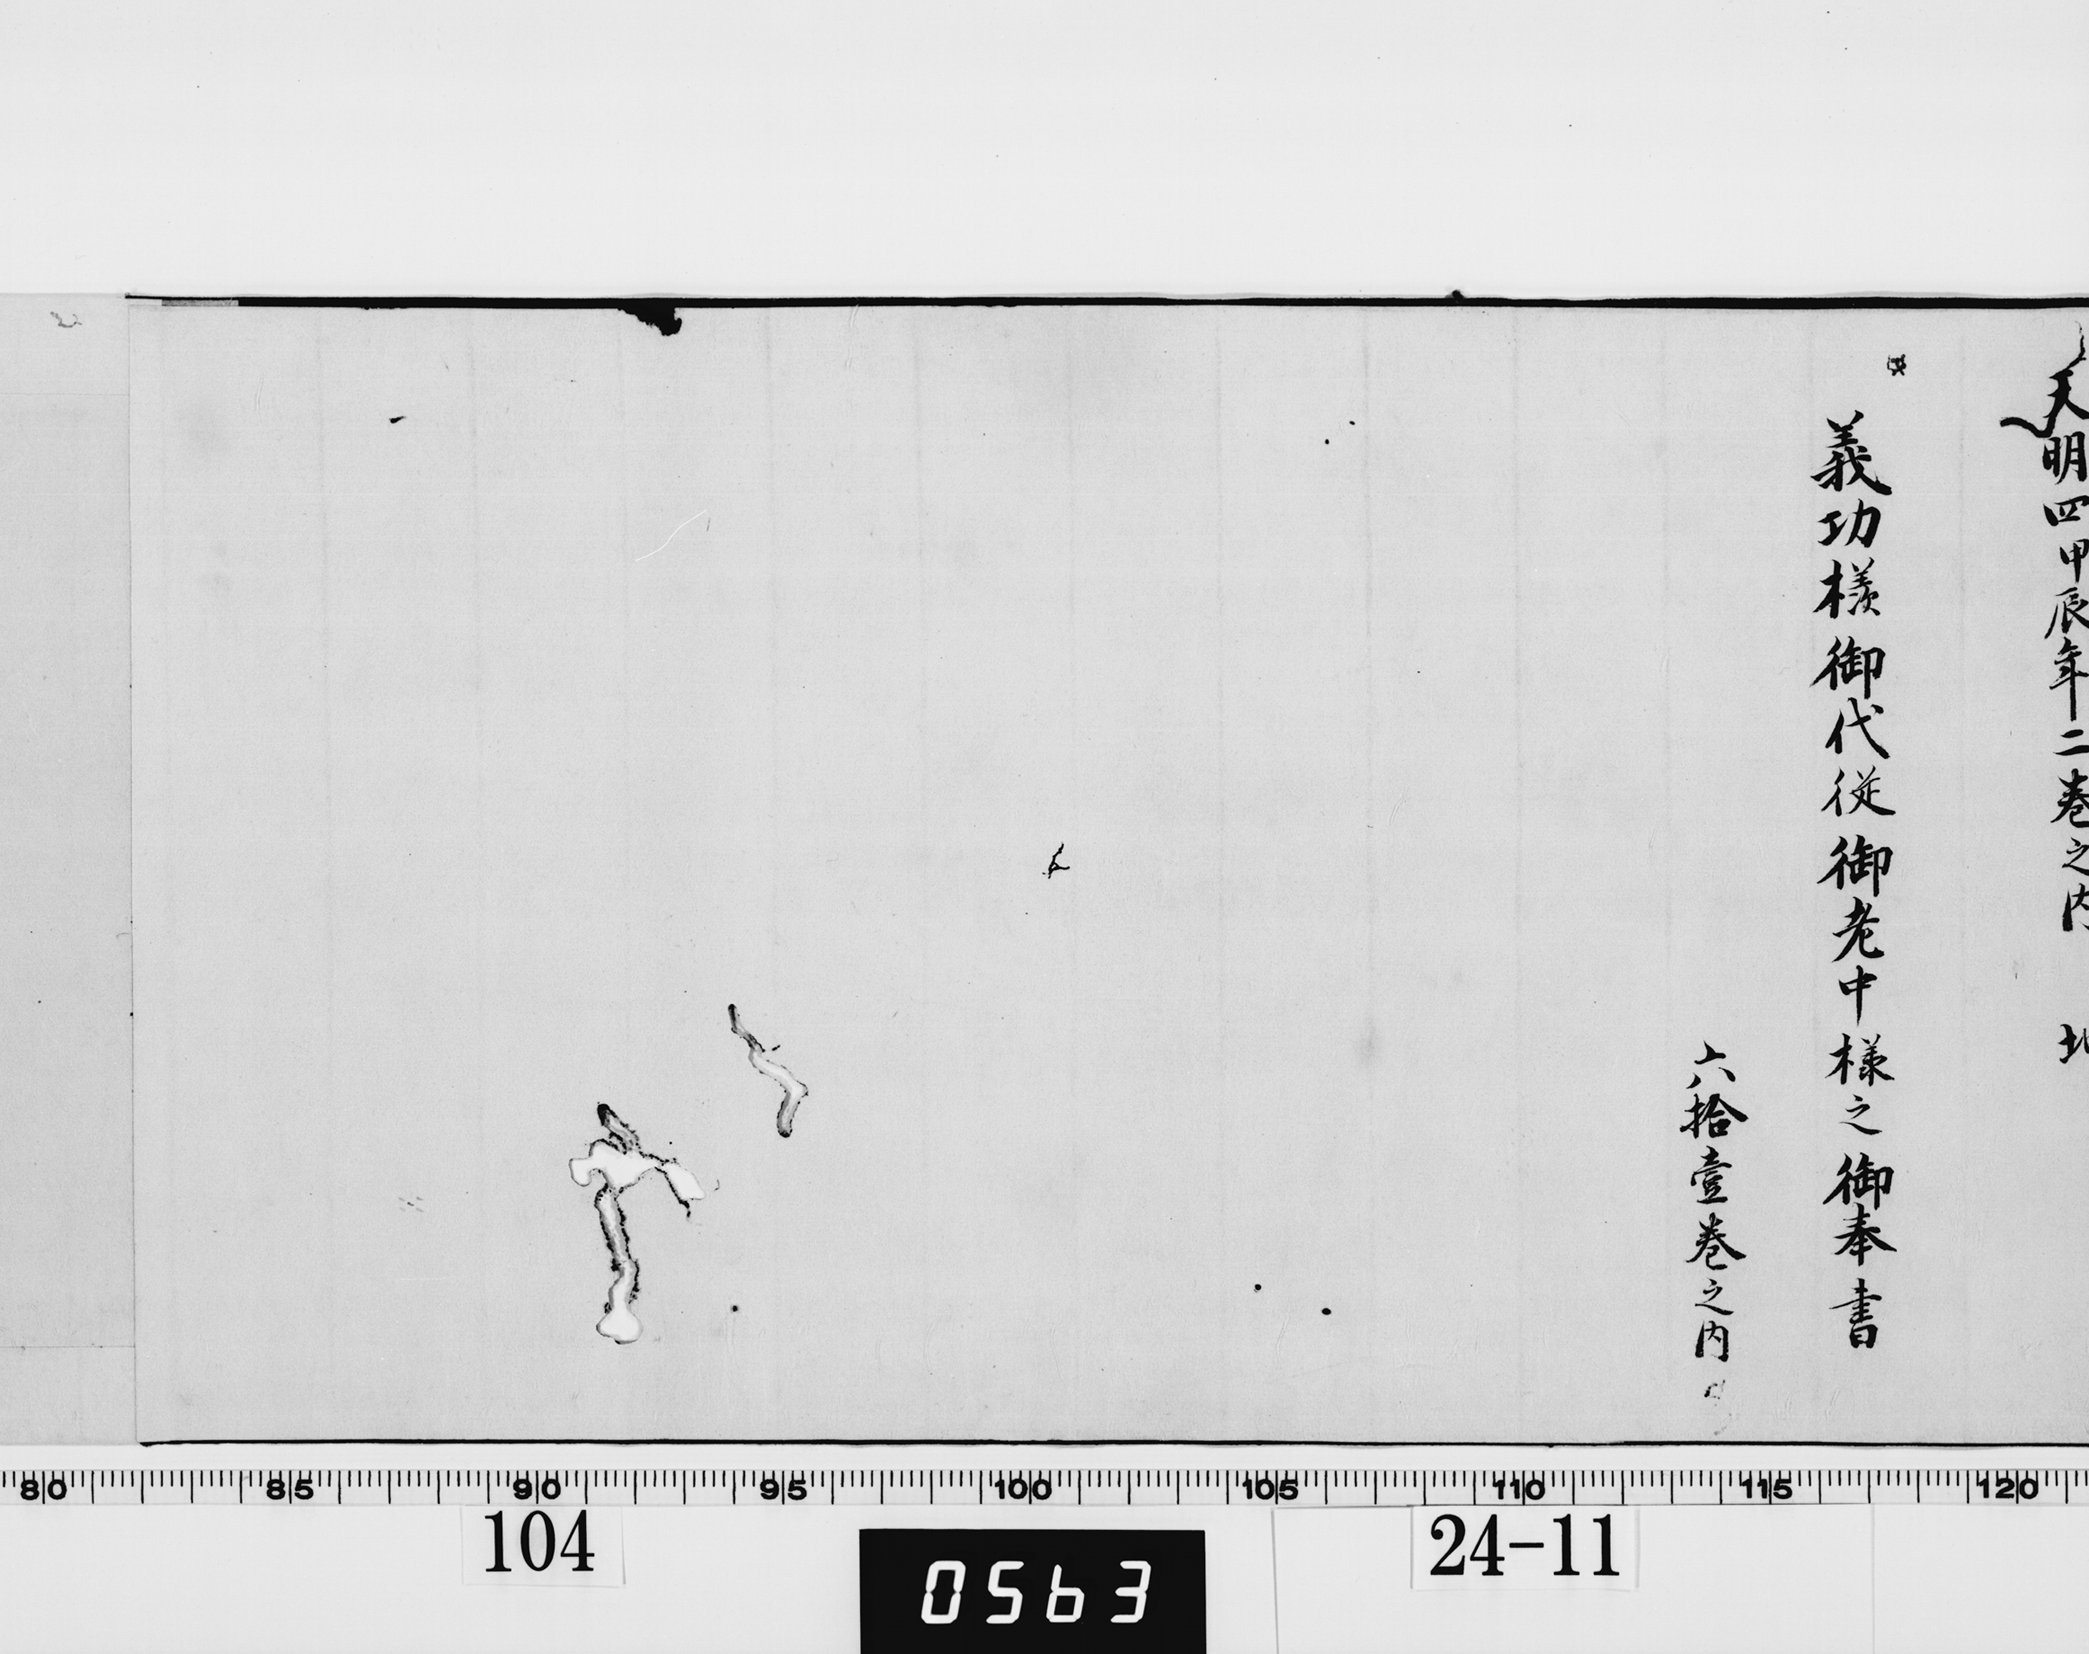 天明四甲辰年二巻之内
義功様御代従御老中様之御奉書
六拾壹巻之内
80 85 90 95 100 105 110 115 120
104
0563
24-11